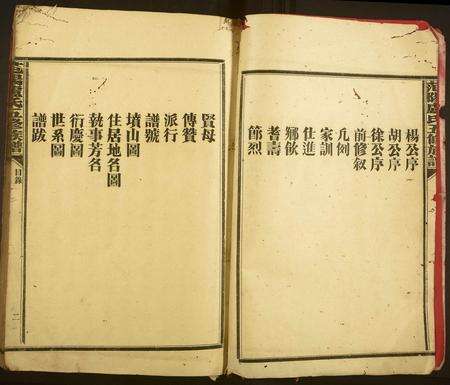 楊公序
胡公序
徐公序
前修叙
凡例
家訓
仕進
鄉飲
耆壽
節烈
賢母
傳贊
派行
譜號
墳山圖
住居地名圖
執事芳名
衍慶圖
世系圖
譜跋
氏五修族譜
目錄
二